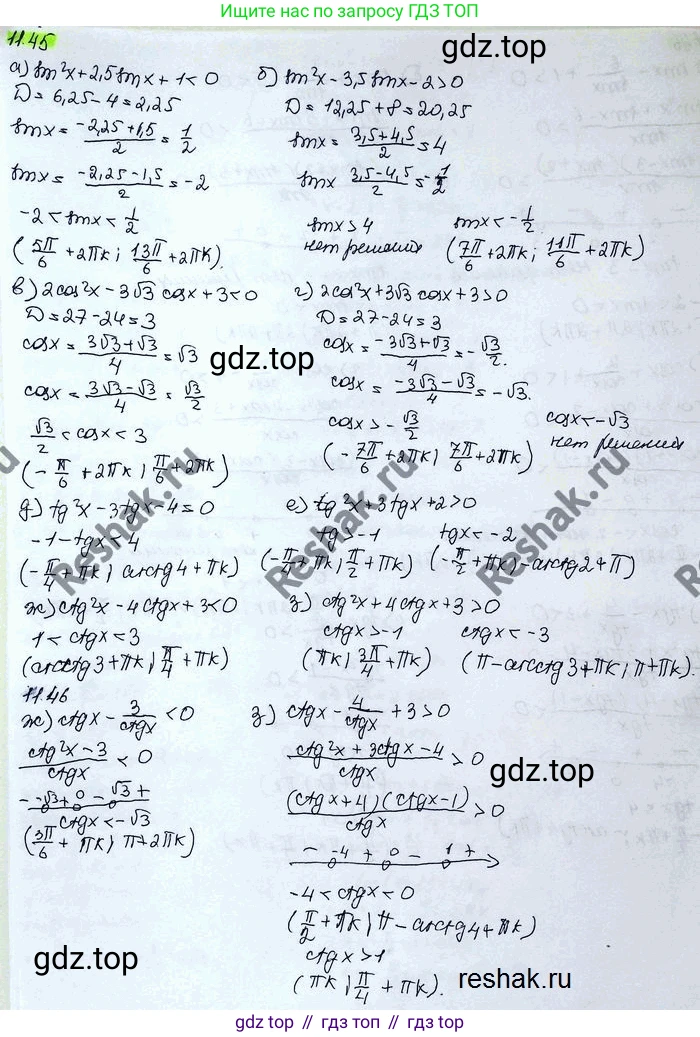 Ищите по запросу ГДЗ ТОП
11.45
а) sin²x + 2,5sinx + 1 < 0
D = 6,25 - 4 = 2,25
sinx = (-2,25 + 1,5)/2 = 1/2
sinx = (-2,25 - 1,5)/2 = -2
-2 < sinx < 1/2
(5π/6 + 2πk; 13π/6 + 2πk).
б) sin²x - 3,5sinx - 2 > 0
D = 12,25 + 8 = 20,25
sinx = (3,5 + 4,5)/2 = 4
sinx (3,5 - 4,5)/2 = -1/2
sinx > 4 sinx < -1/2
нет решения (7π/6 + 2πk; 11π/6 + 2πk)
в) 2cos²x - 3√3 cosx + 3 < 0
D = 27 - 24 = 3
cosx = (3√3 + √3)/4 = √3
cosx = (3√3 - √3)/4 = √3/2
√3/2 < cosx < 3
(-π/6 + 2πk; π/6 + 2πk)
г) 2cos²x + 3√3 cosx + 3 > 0
D = 27 - 24 = 3
cosx = (-3√3 + √3)/4 = -√3/2.
cosx = (-3√3 - √3)/4 = -√3.
cosx > -√3/2 cosx < -√3
нет решения
(-7π/6 + 2πk; 7π/6 + 2πk)
gdz.top
д) tg²x - 3tgx - 4 = 0
-1 - tgx < 4
(-π/4 + πk; arctg4 + πk)
е) tg²x + 3tgx + 2 > 0
tg > -1 tgx < -2
(-π/4 + πk; π/2 + πk) (-π/2 + πk) - arctg2 + π)
ж) ctg²x - 4ctgx + 3 < 0
1 < ctgx < 3
(arcctg3 + πk; π/4 + πk)
з) ctg²x + 4ctgx + 3 > 0
ctgx > -1 ctgx < -3
(πk; 3π/4 + πk) (π - arcctg3 + πk; π + πk).
Reshak.ru
Reshak.ru
Reshak.ru
11.46
ж) ctgx - 3/ctgx < 0
(ctg²x - 3)/ctgx < 0
- -√3 + 0 - √3 +
ctgx < -√3
(3π/6 + πk; π + 2πk)
з) ctgx - 4/ctgx + 3 > 0
(ctg²x + 3ctgx - 4)/ctgx > 0
(ctgx + 4)(ctgx - 1)/ctgx > 0
- -4 + 0 - 1 +
-4 < ctgx < 0
(π/2 + πk; π - arcctg4 + πk)
ctgx > 1
(πk; π/4 + πk).
gdz.top
gdz.top
reshak.ru
gdz.top // гдз топ // гдз.топ